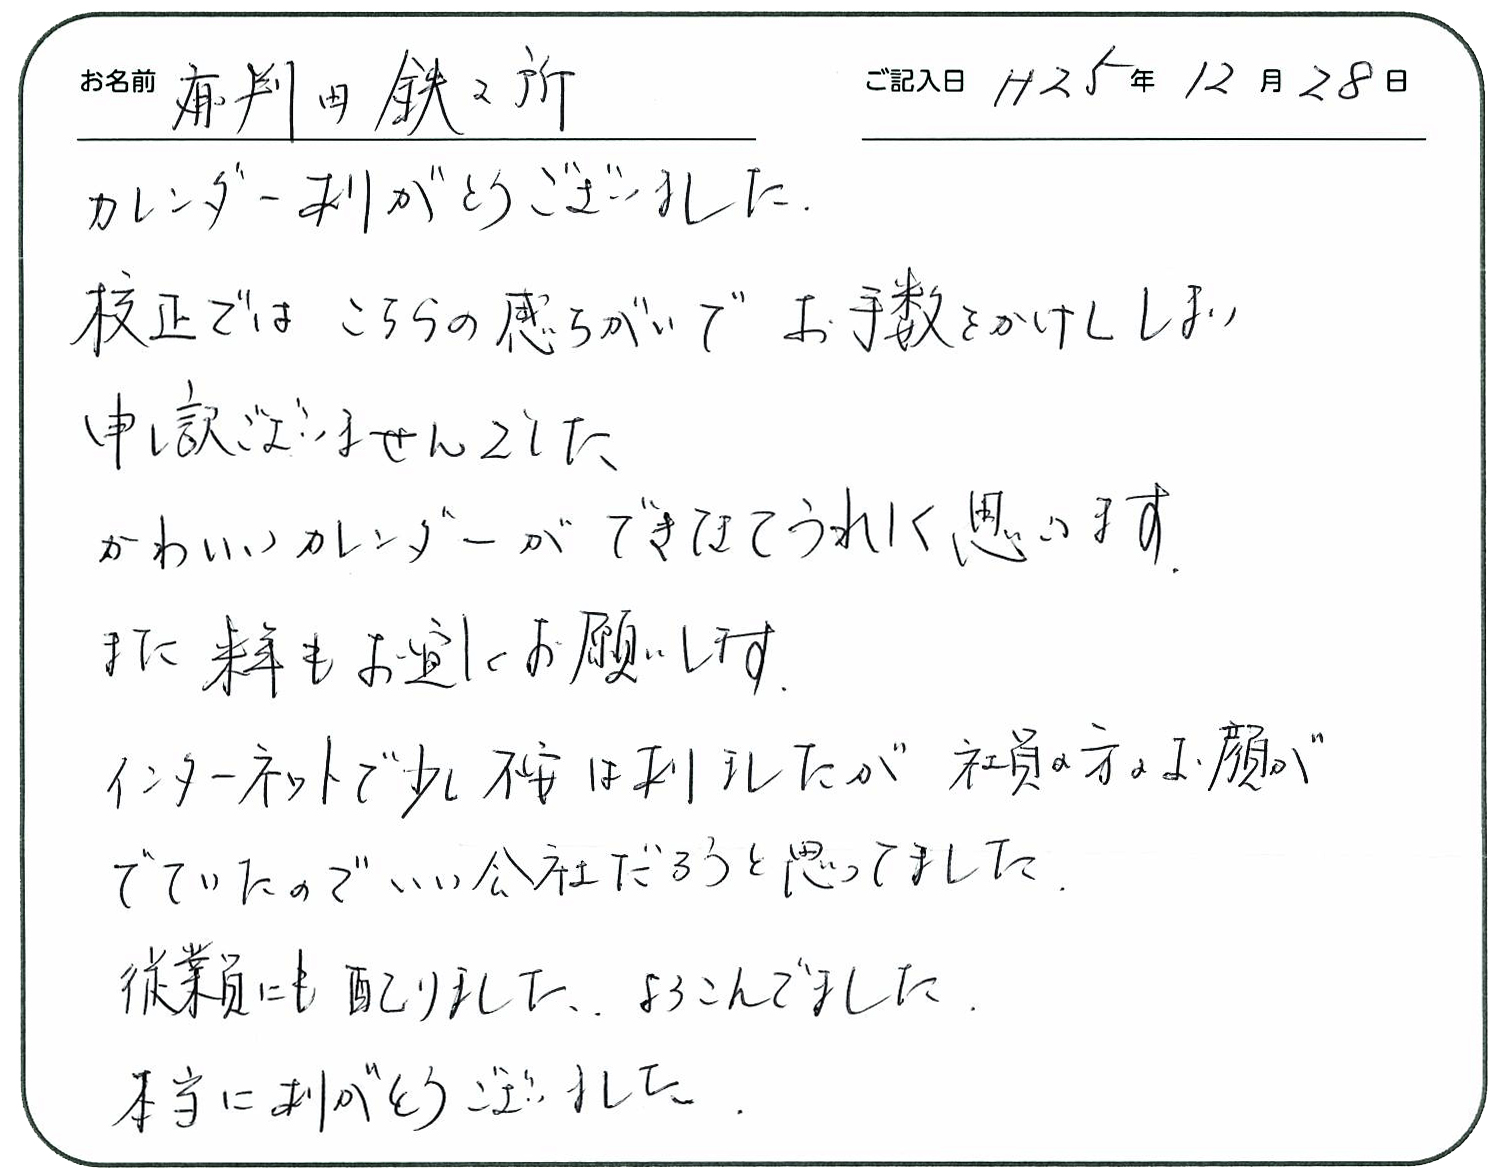 お名前 有判田鉄工所 ご記入日 H25年 12月 28日
カレンダーありがとうございました.
校正では こちらの感ちがいで お手数をかけしまい
申し訳ございませんでした、
かわいいカレンダーができてきてうれしく思います.
また 来年もお宜しくお願いします.
インターネットで少し不安はありましたが 社員の方のお顔が
でていたので いい会社だろうと思ってました.
従業員にも配りました、. よろこんでました.
本当にありがとうございました.